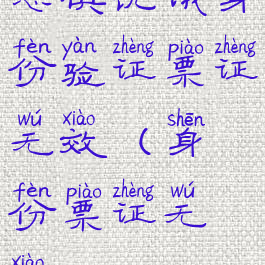 fèn yàn zhèng piào zhèng
份验证票证
wú xiào shēn
无效（身
fèn piào zhèng wú
份票证无
xiào